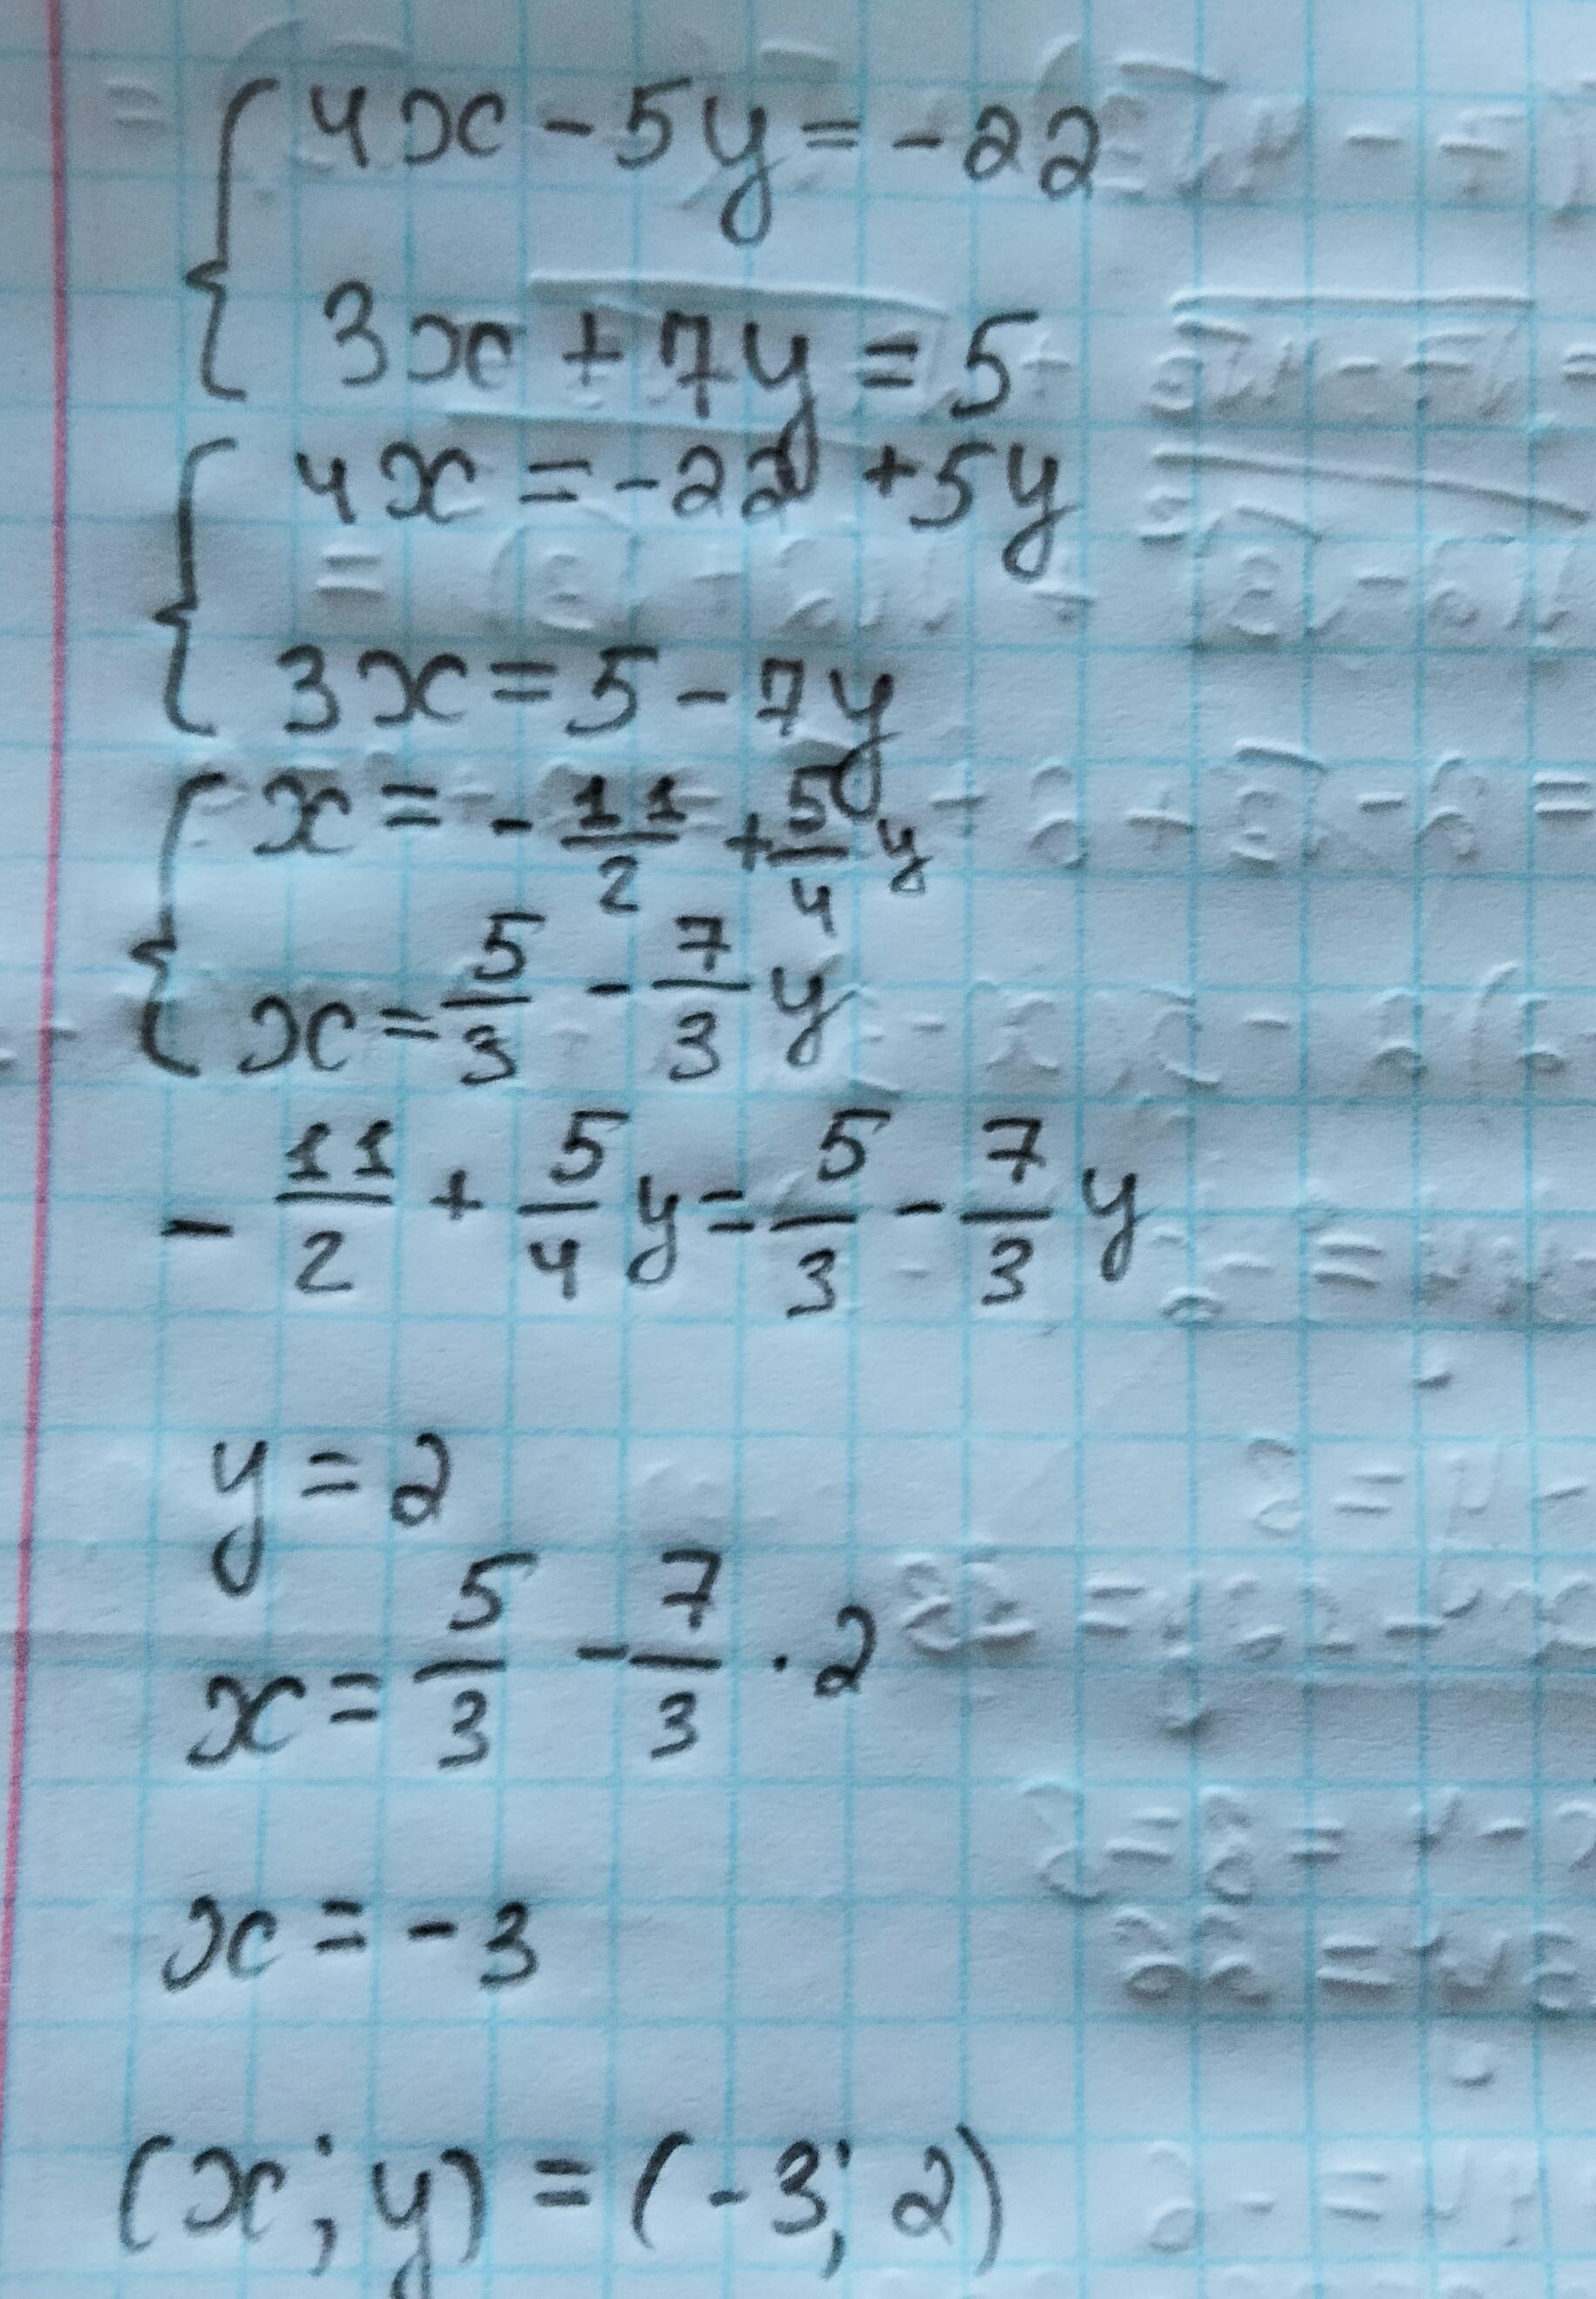 4x - 5y = -22
3x + 7y = 5
4x = -22 + 5y
3x = 5 - 7y
x = - 11/2 + 5/4 y
x = 5/3 - 7/3 y
- 11/2 + 5/4 y = 5/3 - 7/3 y
y = 2
x = 5/3 - 7/3 · 2
x = -3
(x; y) = (-3; 2)